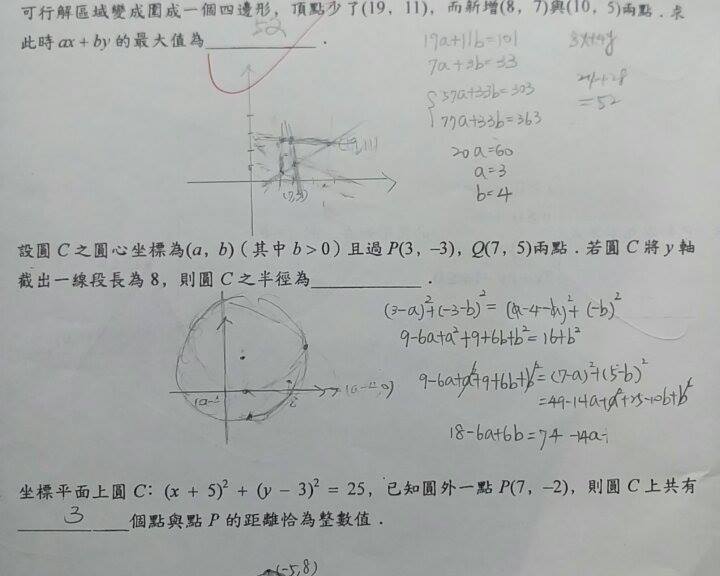 可行解區域變成圍成一個四邊形，頂點少了(19, 11)，而新增(8, 7)與(10, 5)兩點．求
此時 ax + by 的最大值為 52 ．
19a+11b=101
7a+3b=33
57a+33b=303
77a+33b=363
20a=60
a=3
b=4
3x+4y
=52
(7,3)
設圓 C 之圓心坐標為(a, b)（其中 b > 0）且過 P(3, −3)，Q(7, 5)兩點．若圓 C 將 y 軸
截出一線段長為 8，則圓 C 之半徑為 ．
(3-a)²+(-3-b)² = (a-4-a)²+(-b)²
9-6a+a²+9+6b+b²=16+b²
9-6a+a²+9+6b+b²=(7-a)²+(5-b)²
=49-14a+a²+25-10b+b²
18-6a+6b=74-14a
坐標平面上圓 C：(x + 5)² + (y − 3)² = 25，已知圓外一點 P(7, −2)，則圓 C 上共有
3 個點與點 P 的距離恰為整數值．
(-5,8)